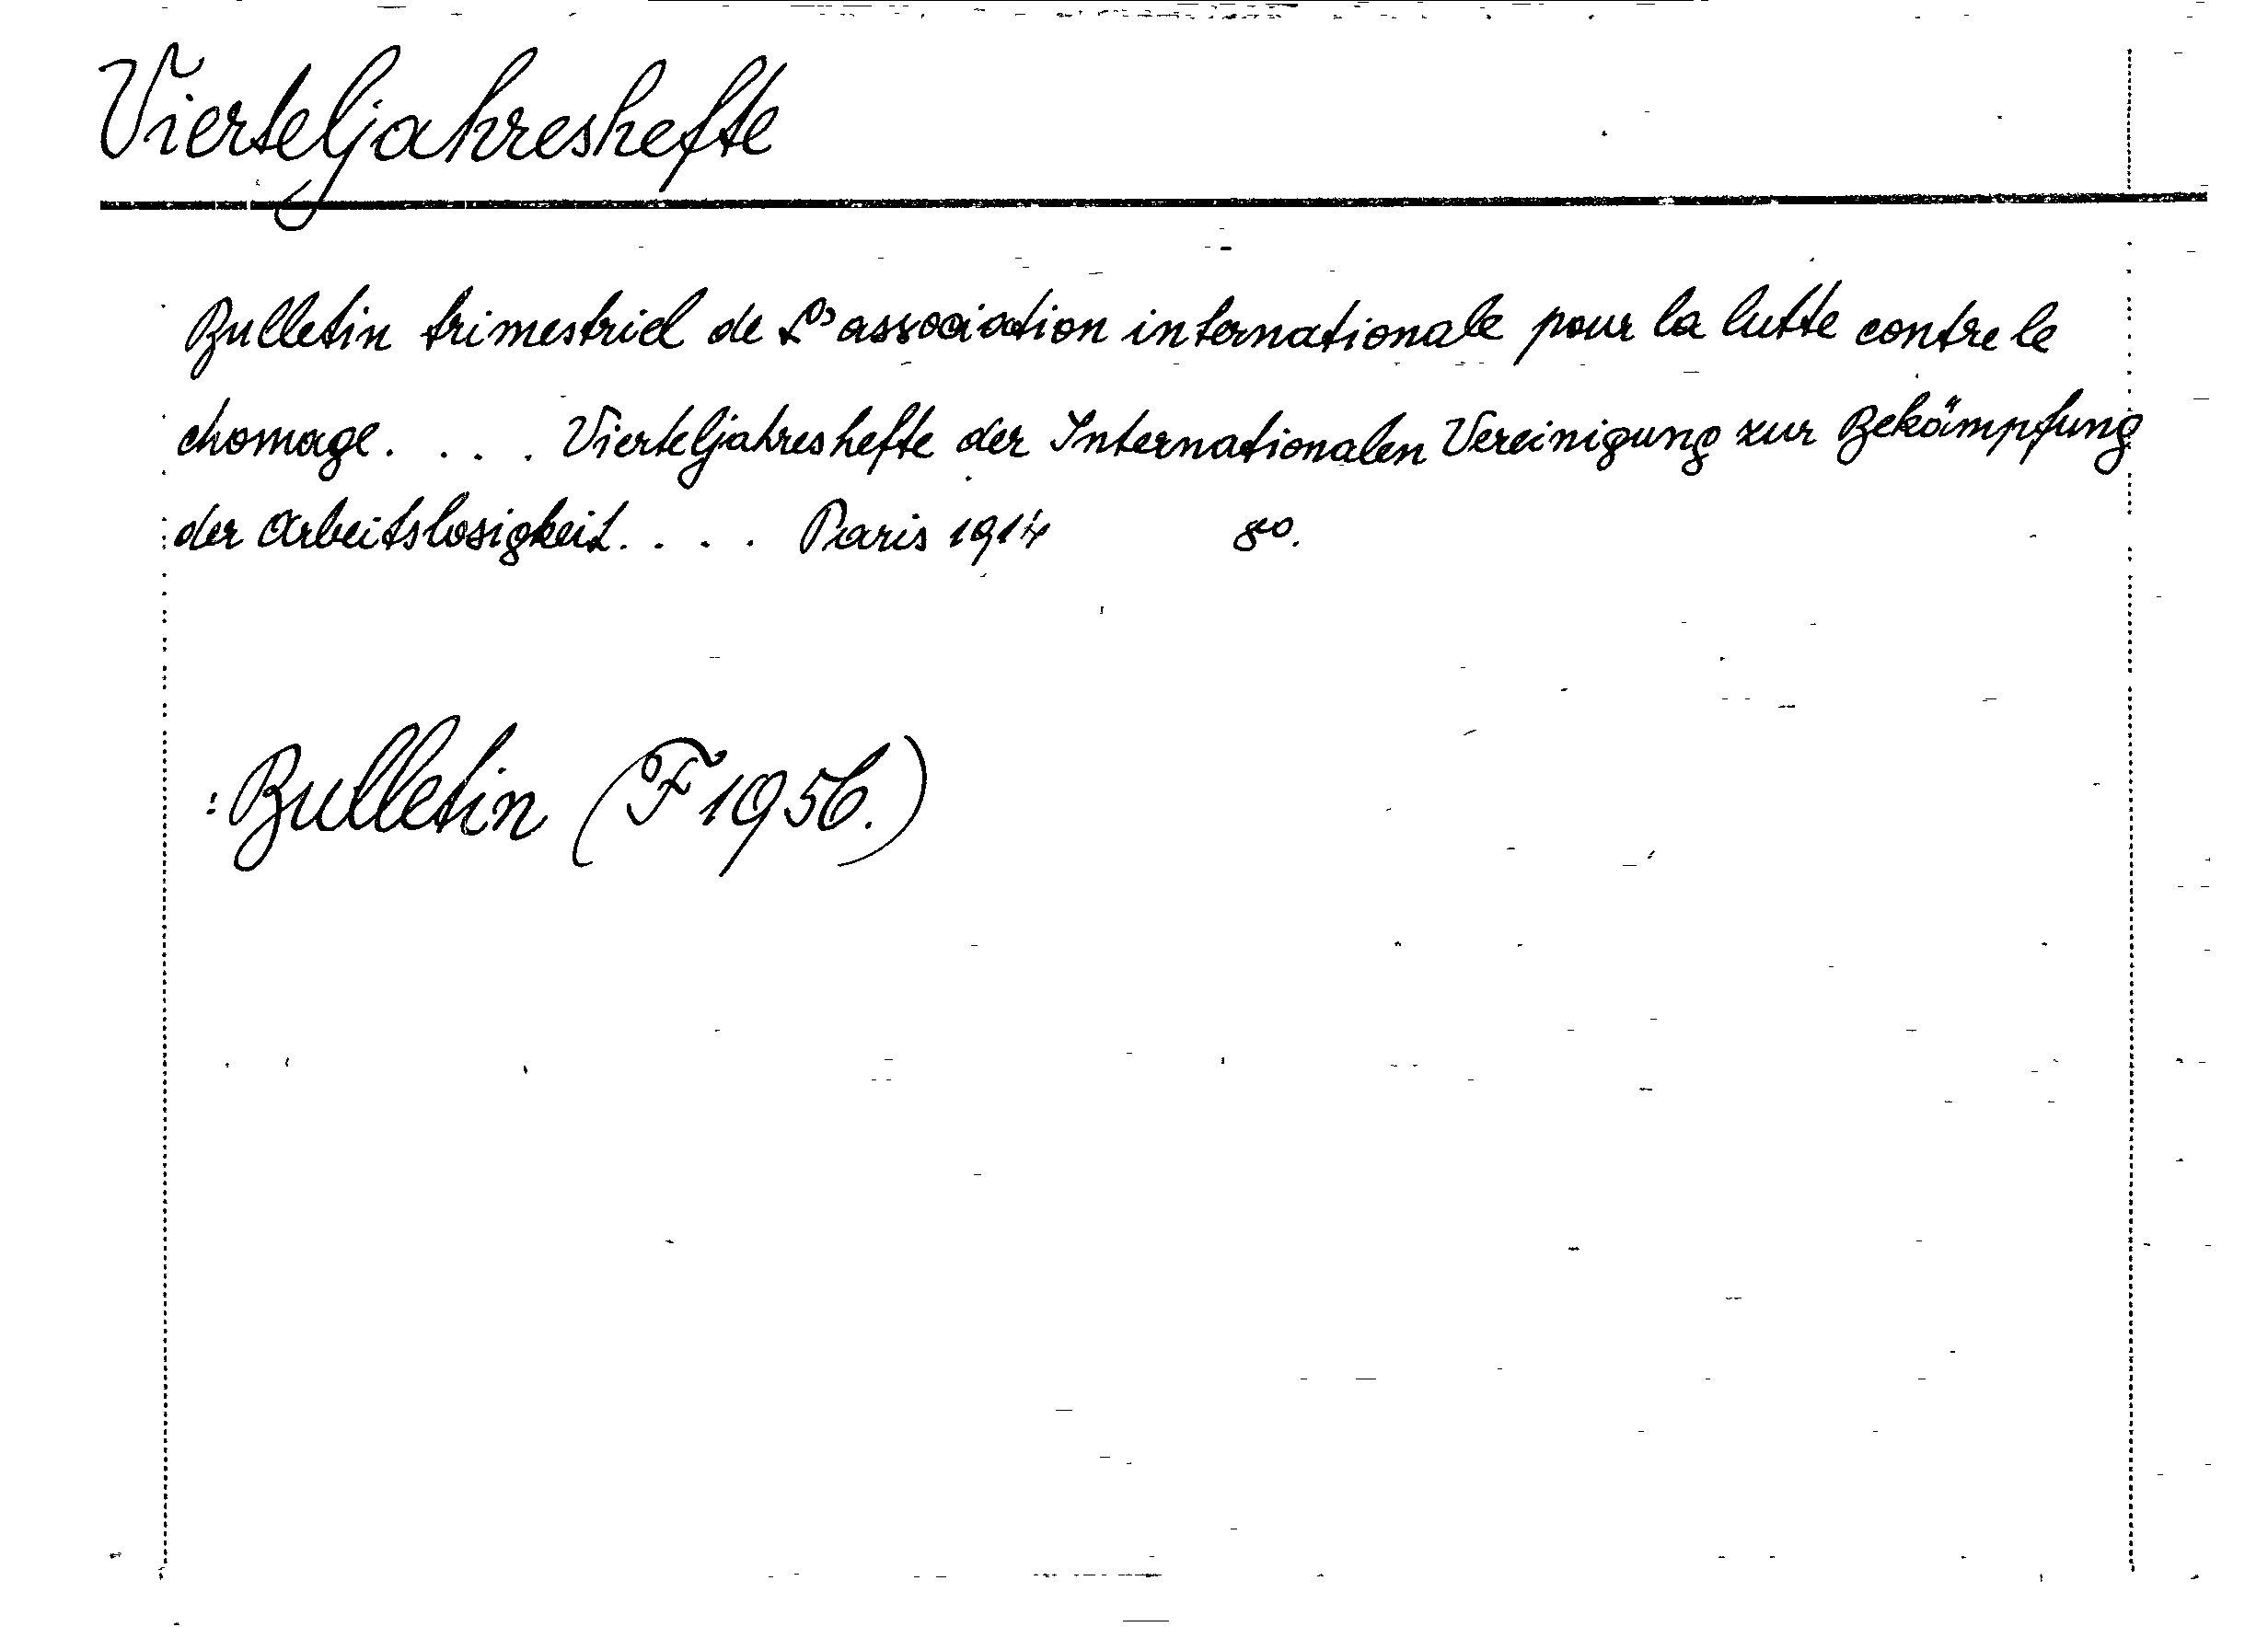 Vierteljahreshefte
Bulletin trimestriel de L'association internationale pour la lutte contre le
chomage. . . . Vierteljahreshefte der Internationalen Vereinigung zur Bekämpfung
der Arbeitslosigkeit. . . . Paris 1914 8o.
: Bulletin (F 1956.)